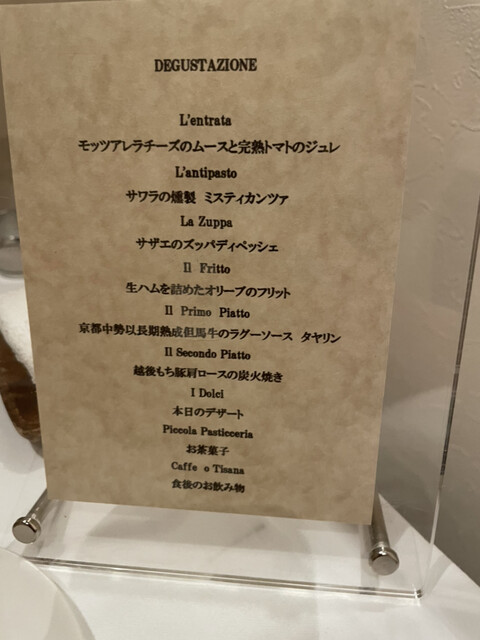 DEGUSTAZIONE
L'entrata
モッツアレラチーズのムースと完熟トマトのジュレ
L'antipasto
サワラの燻製 ミスティカンツァ
La Zuppa
サザエのズッパディペッシェ
Il Fritto
生ハムを詰めたオリーブのフリット
Il Primo Piatto
京都中勢以長期熟成但馬牛のラグーソース タヤリン
Il Secondo Piatto
越後もち豚肩ロースの炭火焼き
I Dolci
本日のデザート
Piccola Pasticceria
お茶菓子
Caffe o Tisana
食後のお飲み物